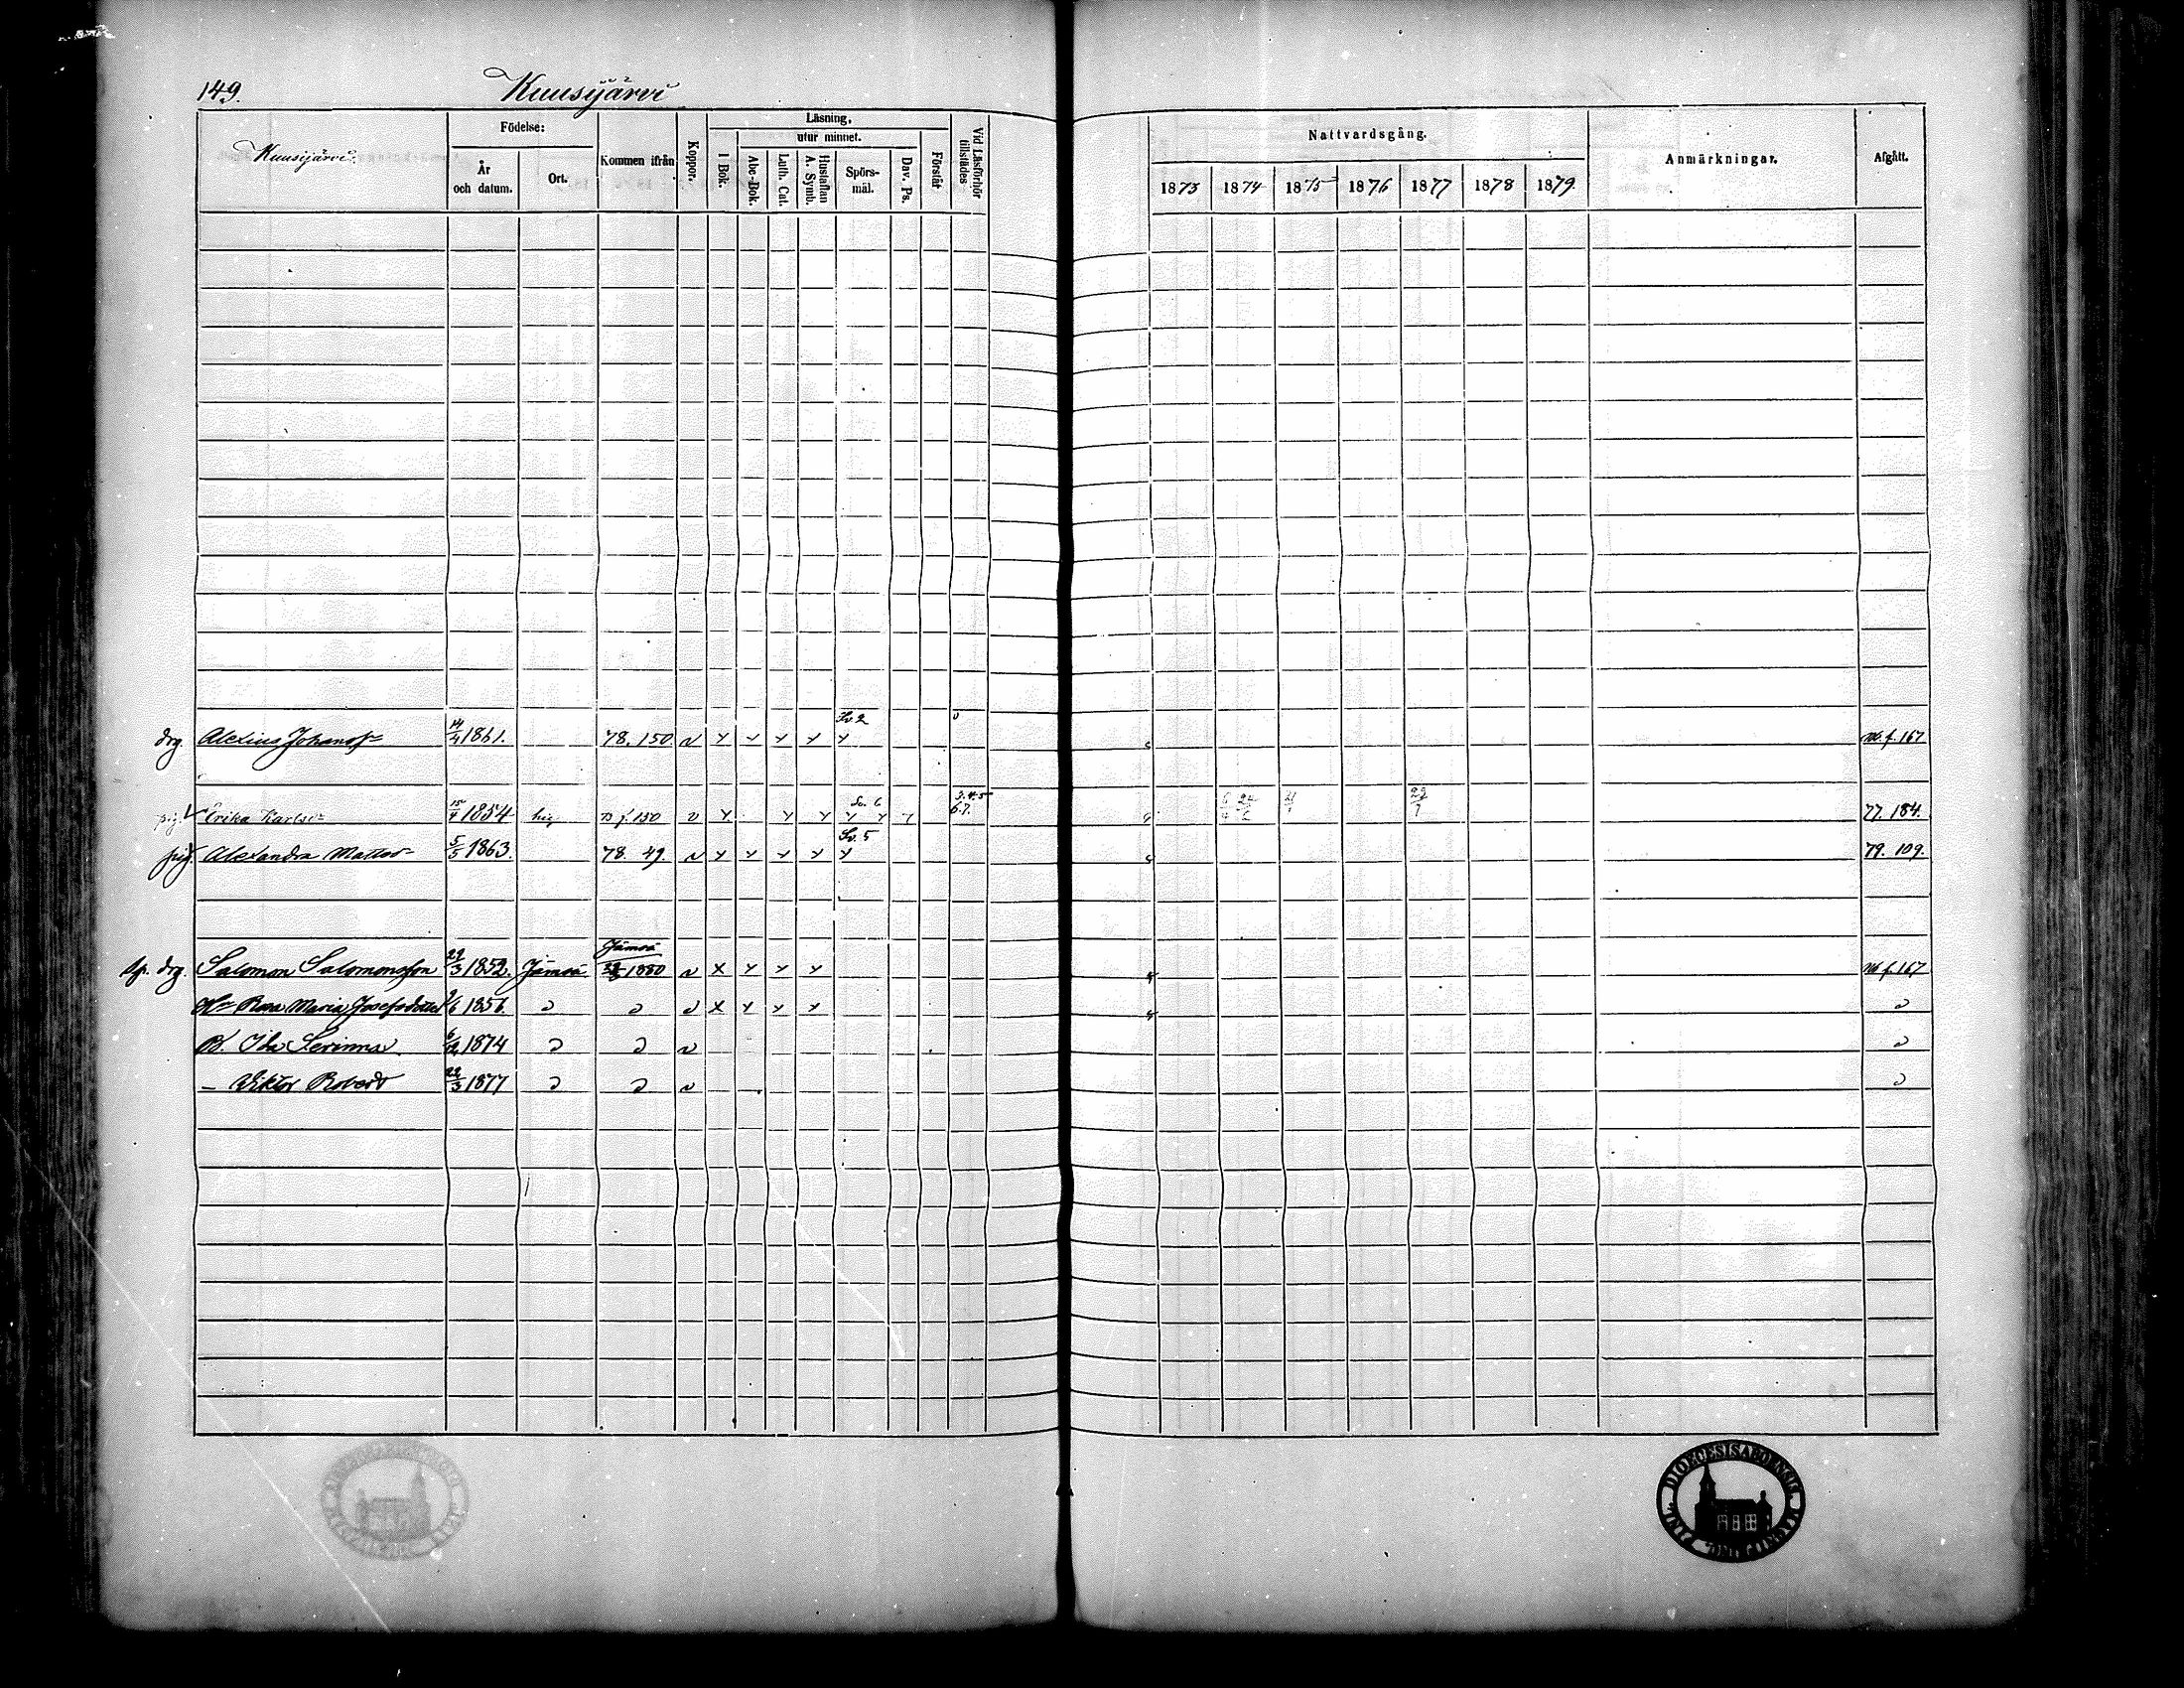 149. Kuusijärvi
Kuusijärvi.
Födelse:
År och datum.
Ort.
Kommen ifrån
Koppor.
Läsning,
utur minnet.
I Bok.
Abc-Bok.
Luth. Cat.
Hustaflan A. Symb.
Spörsmål.
Dav. Ps.
Förstår
Vid Läsförhör tillstädes
Nattvardsgång.
1873 1874 1875 1876 1877 1878 1879.
Anmärkningar.
Afgått.
Sv. 2
drg. Alexius Johanss 14/4 1861. 78. 150 v x x x x x f. 167
Sv. 6 3.4.5
pig. Erika Karlsd 15/4 1854 hig 73 f. 150 v x x x x x 6.7. 77. 184.
Sv. 5
pig. Alexandra Mattsd 5/5 1863. 78. 49. v x x x x x 79. 109.
Jämsä
drg. Salomon Salomonsson 22/3 1852. Jämsä 1880 v x x x x f. 167
Hu Rosa Maria Josefsdotter 6 1856. d d v x x x x d
B. Ida Serinna 6/12 1874 d d v d
– Viktor Robert 22/3 1877 d d v d
DIOECESIS ABOENSIS